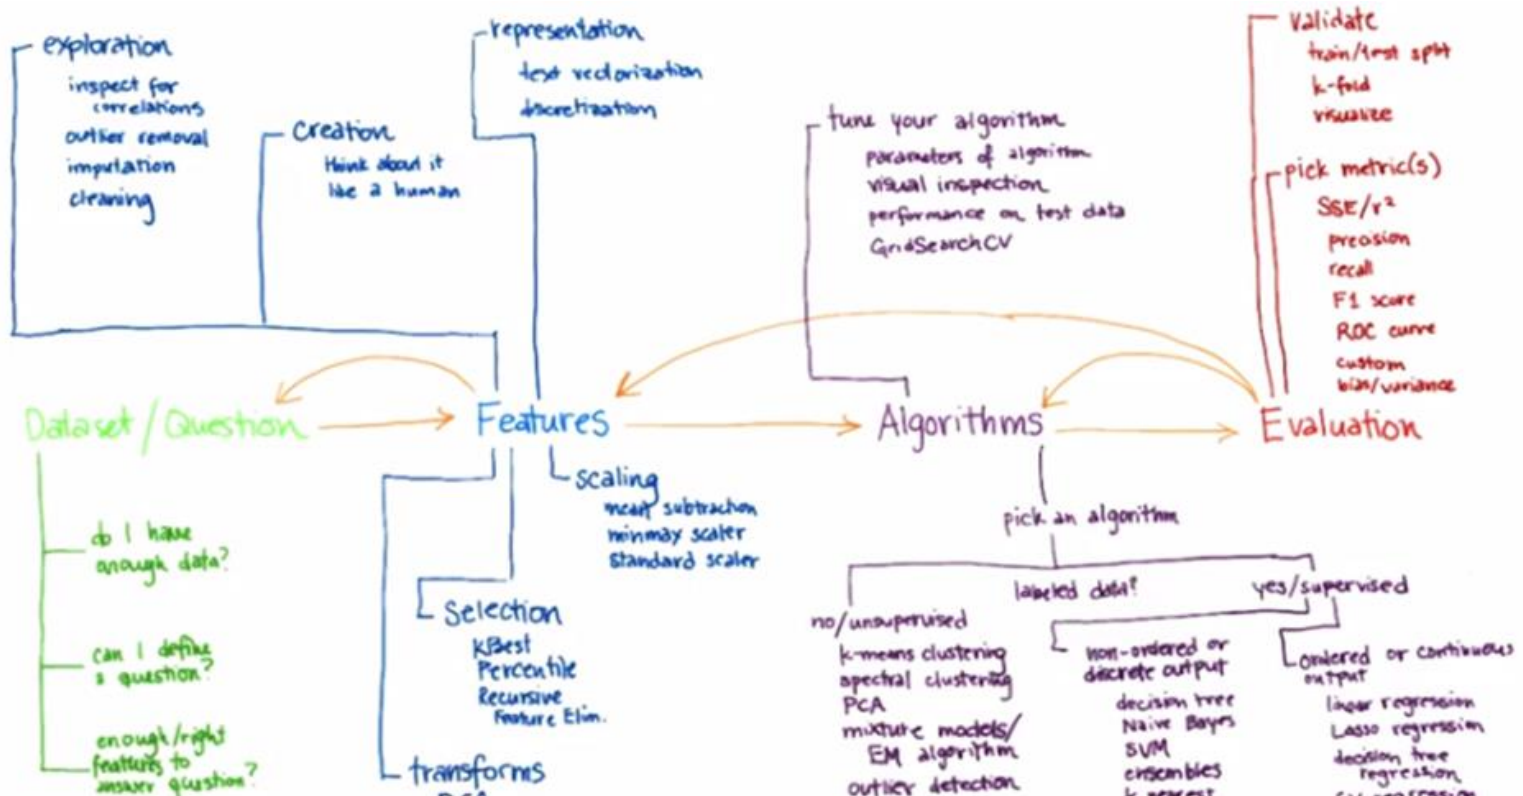 exploration
inspect for
correlations
outlier removal
imputation
cleaning
creation
think about it
like a human
representation
text vectorization
discretization
tune your algorithm
parameters of algorithm
visual inspection
performance on test data
GridSearchCV
validate
train/test split
k-fold
visualize
pick metric(s)
SSE/r²
precision
recall
F1 score
ROC curve
custom
bias/variance
Dataset/Question
Features
Algorithms
Evaluation
do I have
enough data?
can I define
a question?
enough/right
features to
answer question?
scaling
mean subtraction
minmax scaler
standard scaler
Selection
KBest
Percentile
Recursive
Feature Elim.
transforms
PCA
pick an algorithm
labeled data?
no/unsupervised
k-means clustering
spectral clustering
PCA
mixture models/
EM algorithm
outlier detection
yes/supervised
non-ordered or
discrete output
decision tree
Naive Bayes
SVM
ensembles
k nearest
ordered or continuous
output
linear regression
Lasso regression
decision tree
regression